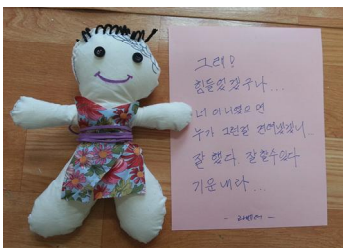 그래!
힘들었겠구나...
너 아니었으면
누가 그런걸 견뎌냈겠니..
잘했다. 잘할수있다
기운내라...